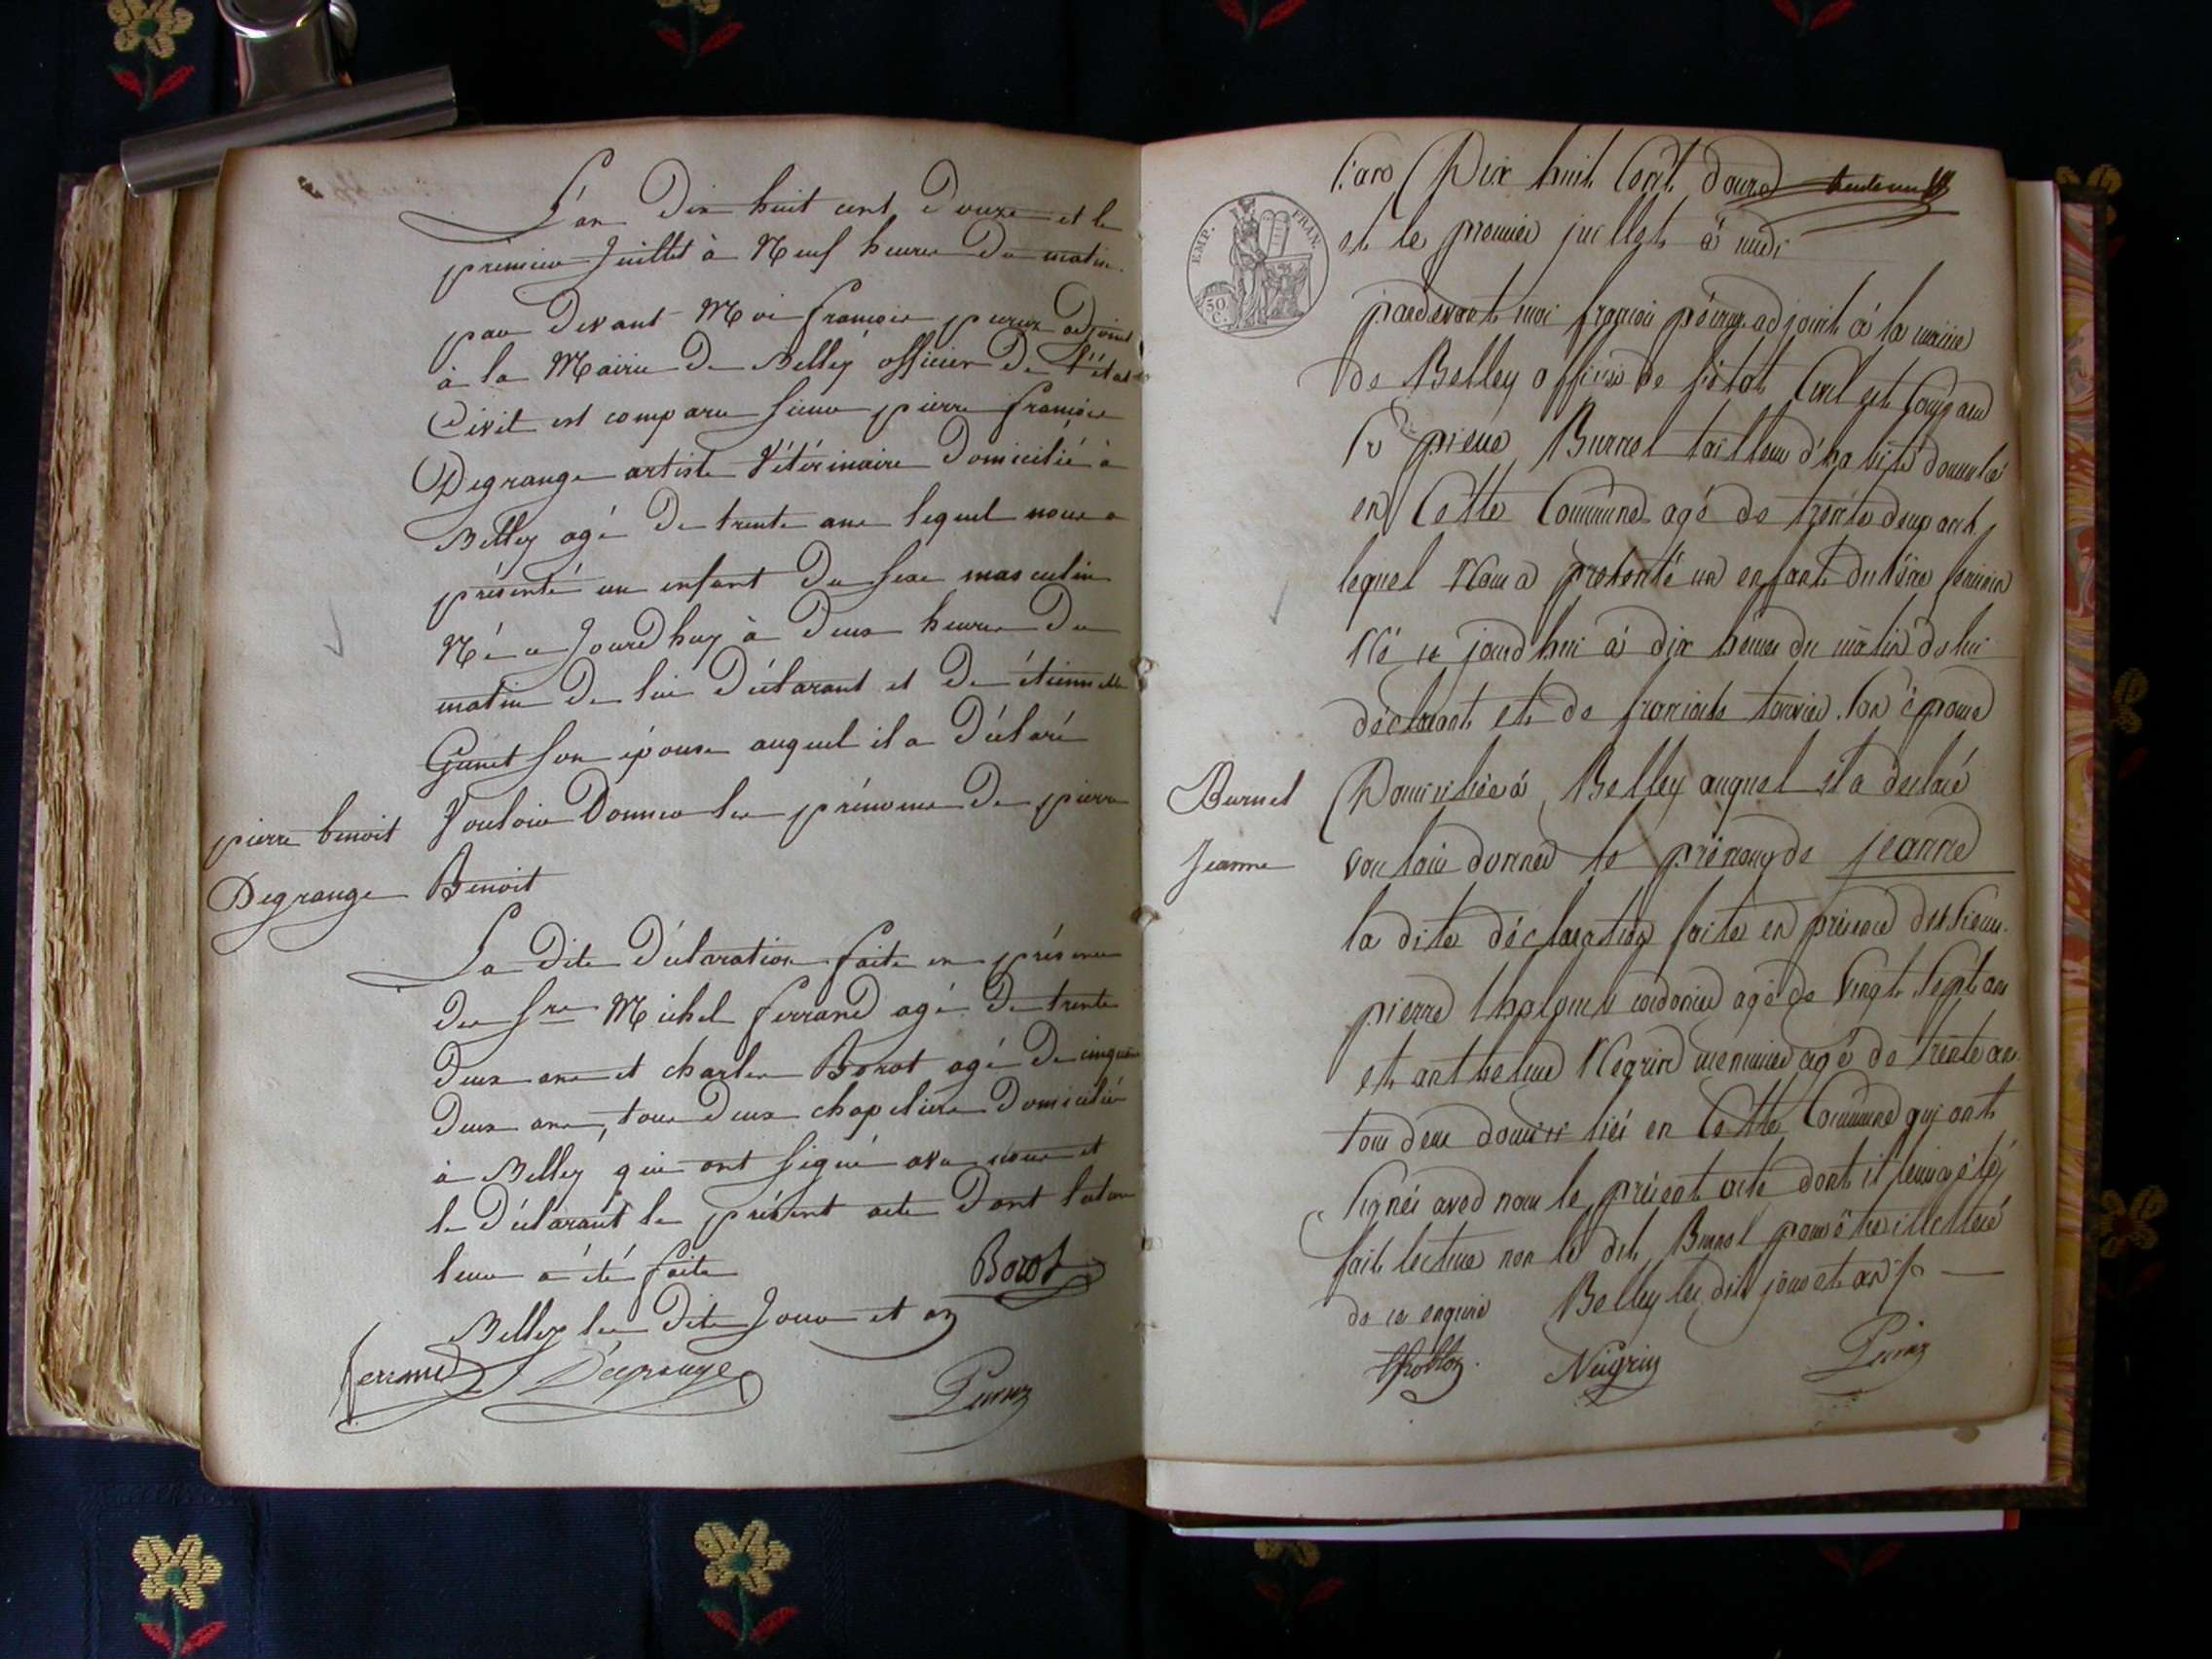 L'an Dix huit cent Douze et le
premier Juillet à Neuf heures Du matin
par Devant Moi françois peruz adjoint
à la Mairie De Belley officier De l'état
Civil est comparu sieur pierre françois
Degrange artiste Vétérinaire Domicilié à
Belley agé De trente ans lequel nous a
présenté un enfant Du sexe masculin
Né ce Jourdhuy à Deux heures Du
matin De lui Déclarant et De étiennette
son épouse auquel il a Déclaré
Vouloir Donner les prénoms De pierre
pierre benoit
Degrange
Benoit
La Dite Déclaration faite en présence
des Srs Michel ferrand agé De trente
Deux ans et charles Borot agé De cinquante
Deux ans, tous Deux chapeliers Domiciliés
à Belley qui ont signé avec nous et
le Déclarant le présent acte Dont lecture
leur a été faite
Borot
Belley les Dits Jour et an
ferrand Degrange
Peruz
L'an Dix huit Cent douze
et le premier juillet à midi
EMP. FRAN.
50 C.
pardevant moi françois péruz adjoint à la mairie
de Belley officier de l'état Civil est Comparu
Sr pierre Burnet tailleur d'habits domicilié
en Cette Commune agé de trente deux ans
lequel Nous a présenté un enfant du sexe féminin
Né ce jourd'hui à dix heures du matin de lui
déclarant et de françoise son épouse
Burnet
Jeanne
Domiciliée à Belley auquel il a déclaré
vouloir donner le prénom de jeanne
la dite déclaration faite en présence des sieurs
pierre cordonier agé de Vingt Sept ans
et anthelme Negrin menuisier agé de trente ans
tous deux domiciliés en Cette Commune qui ont
Signés avec nous le présent acte dont il leur a été
fait lecture non le dit Burnet pour être illettéré
de ce enquis Belley les dits jour et an
Négrin
Peruz